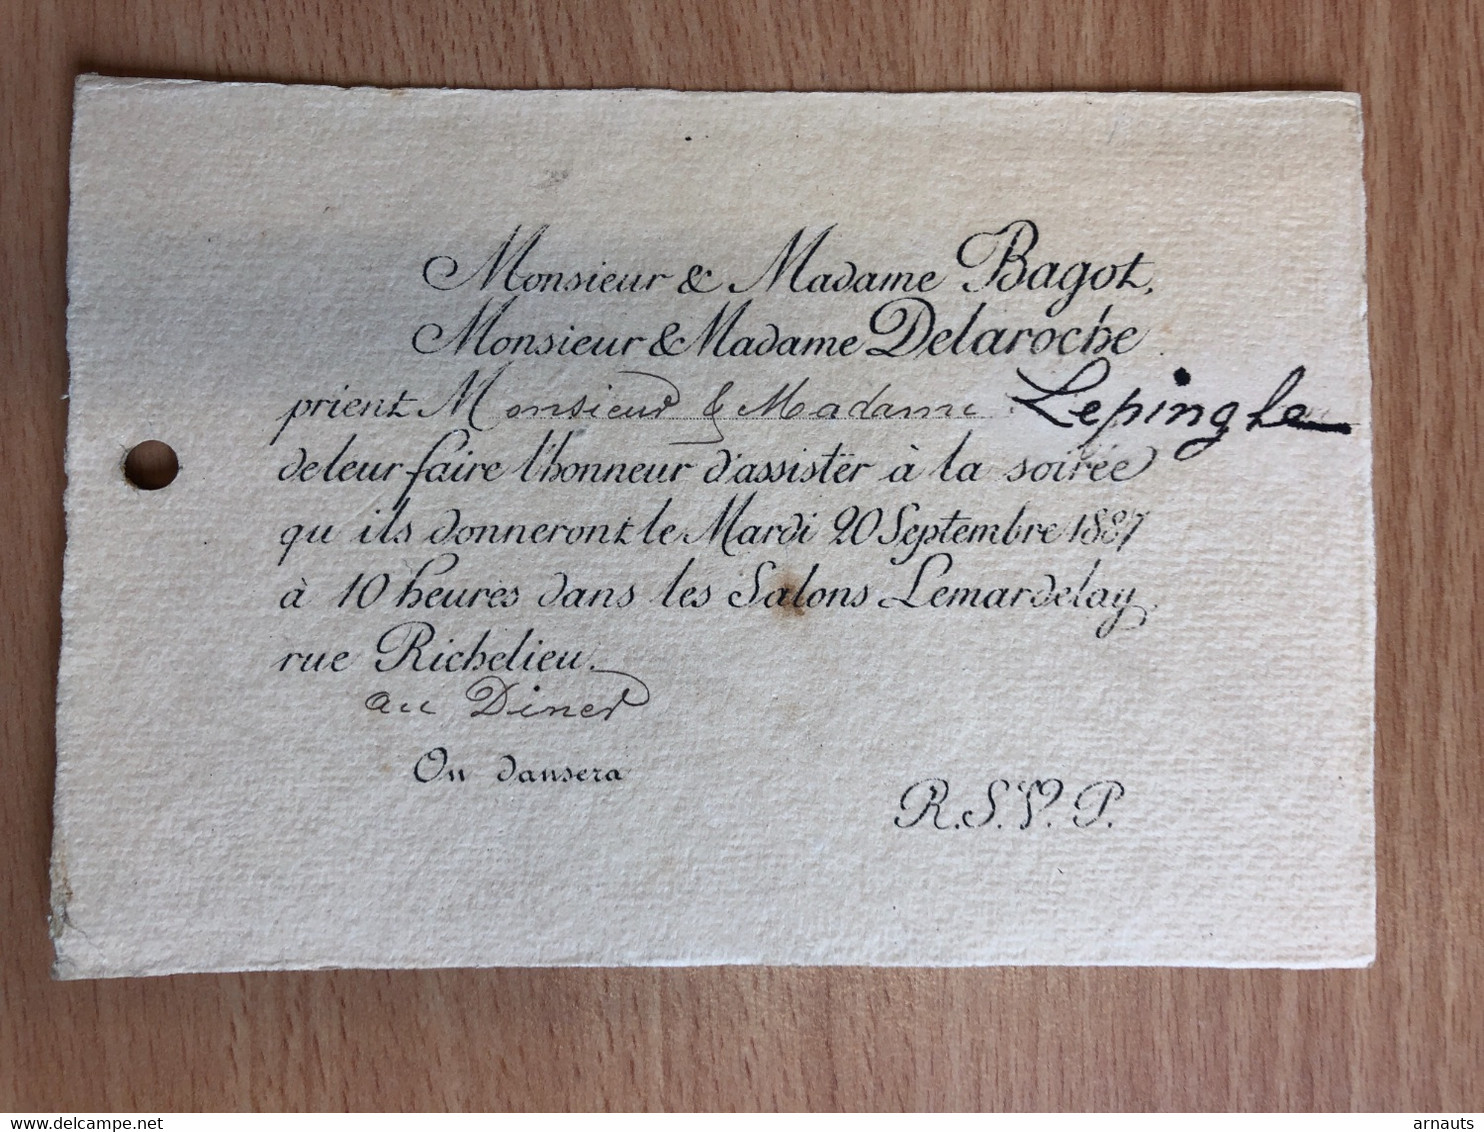 Monsieur & Madame Bagot,
Monsieur & Madame Delaroche
prient Monsieur & Madame Lepingle
de leur faire l'honneur d'assister à la soirée
qu'ils donneront le Mardi 20 Septembre 1887
à 10 heures dans les Salons Lemardelay,
rue Richelieu.
au Diner
On dansera
R.S.V.P.
delcampe.net
arnauts